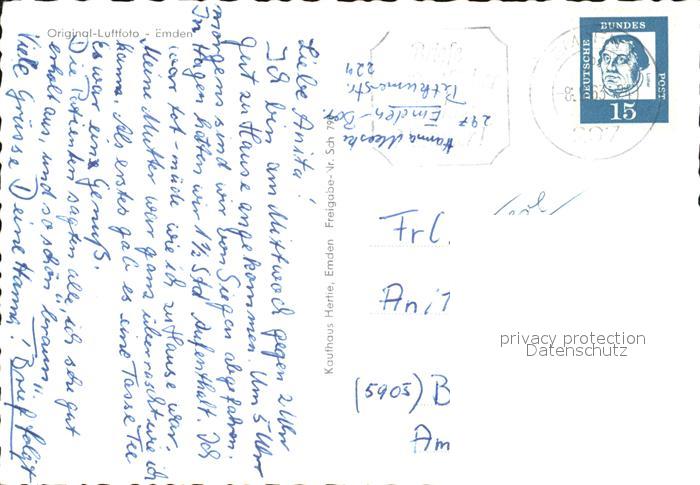 Original-Luftfoto - Emden
Liebe Anita!
Ich bin am Mittwoch gegen 2 Uhr
gut zu Hause angekommen. Um 5 Uhr
morgens sind wir von Siegen abgefahren.
In Hagen hatten wir 1½ Std Aufenthalt. Ich
war tot-müde wie ich zu Hause war.
Meine Mutter war ganz überrascht wie ich
kam. Als erstes gab es eine Tasse Tee
Es war ein Genuß.
Die Patienten sagten alle, ich sehe gut
erholt aus, und so schön "braun".
Viele Grüsse Deine Hanna! Brief folgt
Kaufhaus Hertie, Emden Freigabe-Nr. Sch 79
Hanna
297 Emden-Bor.
Petkumerstr.
224
DEUTSCHE
BUNDES
POST
15
Frl.
Anit
(5905) B
Am
privacy protection
Datenschutz